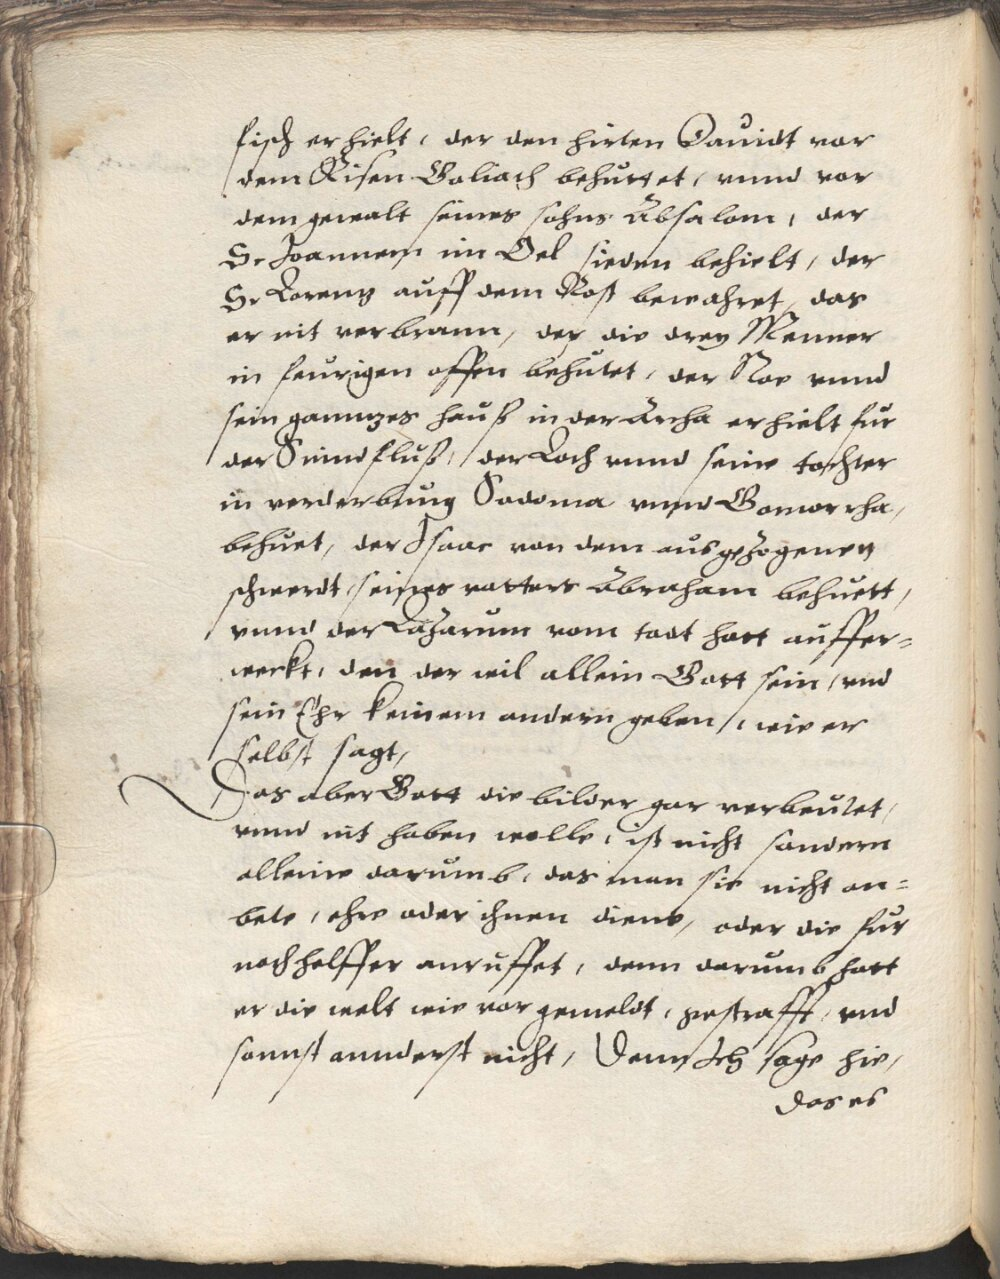 fisch erhielt, der den hirten Dauidt vor
dem Risen Goliach behuttet, vnnd vor
dem gewalt seines sohns Absalom, der
S. Joannem im Oel sieden behielt, der
S. Lorentz auff dem Rost bewahret, das
er nit verbrann, der die drey Menner
in feurigen offen behütet, der Noe vnnd
sein ganntzes hauß in der Archa erhielt für
der Sinndfluß, der Loth vnnd seine tochter
in verderbung Sodoma vnnd Gomorrha,
behuet, der Isaac von dem ausgezogenen
schwerdt seines vatters Abraham behuett,
vnnd der Lazarum vom todt hatt auffer=
weckt, den der wil allein Gott sein, vnd
sein Ehr keinem andern geben, wie er
selbst sagt,
Das aber Gott die bilder gar verbeutet,
vnnd nit haben wolle, ist nicht sondern
alleine darumb, das man sie nicht an=
bete, ehre oder ihnen diene, oder die für
nothhelffer anruffet, denn darumb hatt
er die welt wie vor gemeldt, gestrafft, vnd
sonnst annderst nicht, Denn Ich sage hie,
das es